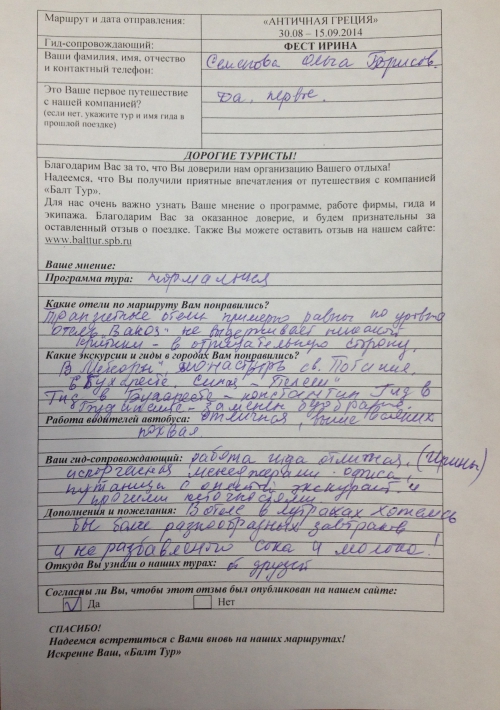 Маршрут и дата отправления: «АНТИЧНАЯ ГРЕЦИЯ»
30.08 – 15.09.2014
Гид-сопровождающий: ФЕСТ ИРИНА
Ваши фамилия, имя, отчество
и контактный телефон: Ольга Борисов.
Это Ваше первое путешествие
с нашей компанией? Да, первое.
(если нет, укажите тур и имя гида в
прошлой поездке)
ДОРОГИЕ ТУРИСТЫ!
Благодарим Вас за то, что Вы доверили нам организацию Вашего отдыха!
Надеемся, что Вы получили приятные впечатления от путешествия с компанией
«Балт Тур».
Для нас очень важно узнать Ваше мнение о программе, работе фирмы, гида и
экипажа. Благодарим Вас за оказанное доверие, и будем признательны за
оставленный отзыв о поездке. Также Вы можете оставить отзыв на нашем сайте:
www.balttur.spb.ru
Ваше мнение:
Программа тура: нормальная
Какие отели по маршруту Вам понравились?
Транзитные отели примерно равны по уровню
отель не выдерживает никакой
критики - в отрицательную сторону.
Какие экскурсии и гиды в городах Вам понравились?
В Метеоры" монастырь св.
в Бухаресте. Синая - "Пелеш"
Гид в Бухаресте - Константин Гид в
Будапеште -
Работа водителей автобуса: отличная, выше всяких
похвал.
Ваш гид-сопровождающий: работа гида отличная, (Ирины)
испорченная менеджерами офиса,
путаница с оплатой экскурсий и
прочими
Дополнения и пожелания: В отеле в Лутраках хотелось
бы более разнообразных завтраков
и не разбавленого сока и молока!
Откуда Вы узнали о наших турах: от друзей
Согласны ли Вы, чтобы этот отзыв был опубликован на нашем сайте:
Да Нет
СПАСИБО!
Надеемся встретиться с Вами вновь на наших маршрутах!
Искренне Ваш, «Балт Тур»